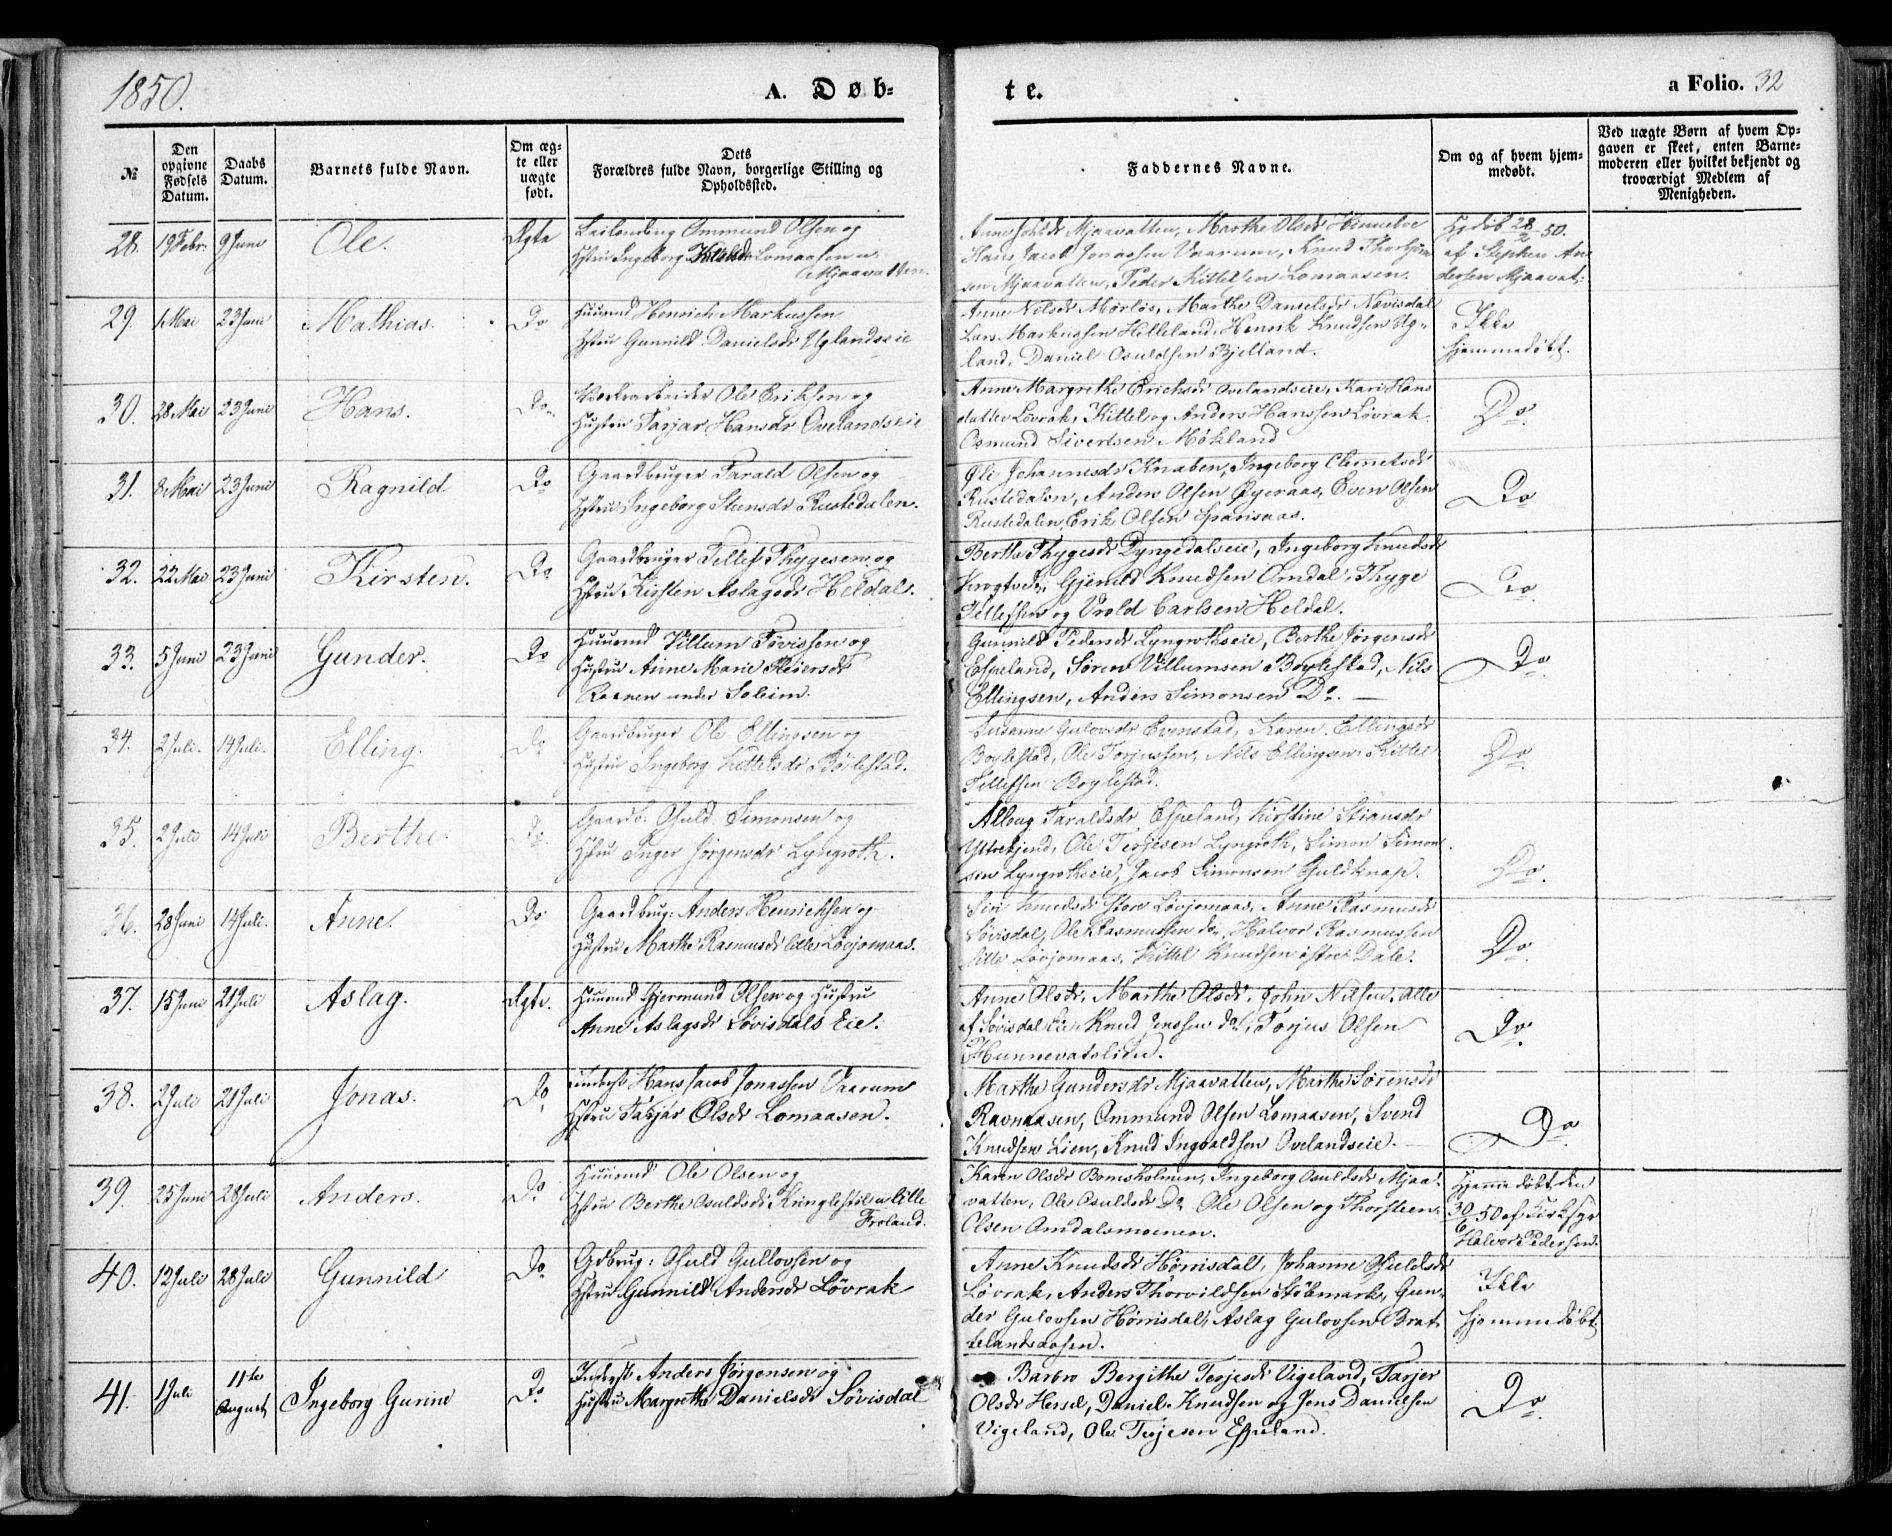 1850.
A. Døb-
te.
a Folio. 32
№
Den opgivne Fødsels Datum.
Daabs Datum.
Barnets fulde Navn.
Om ægte eller uægte født.
Dets
Forældres fulde Navn, borgerlige Stilling og
Opholdssted.
Faddernes Navne.
Om og af hvem hjem-
medøbt.
Ved uægte Børn af hvem Op-
gaven er skeet, enten Barne-
moderen eller hvilket bekjendt og
troværdigt Medlem af
Menigheden.
28. 19 Febr. 9 Juni Ole. Ægte
Ommund Olsen og
Hstru Ingeborg Lomaasen u.
Mjaavatten.
Mjaavatten, Marthe Olsdr
Hans Jacob Jonassen Vaarum, Knud
sen Mjaavatten, Peder Kittelsen Lomaasen.
Hjdøb. 28/2 50.
af Stephen An
dersen Mjaavat:
29. 1 Mai 23 Juni Mathias. Do
Huusmd Henrich Markussen
Hstru Gunnild Danielsdr Uglandseie
Anne Nilsdr Mørløs, Marthe Danielsdr Nævisdal
Lars Markussen Hilleland, Henrik Knudsen Ug-
land, Daniel Osuldsen Bjelland.
Ikke
hjemmedøbt.
30. 28 Mai 23 Juni Hans. Do
Ole Eriksen og
Hustru Tarjer Hansdr Ovelandseie
Anne Margrethe Erichsdr Ovelandseie, Kari Hans
datter Løvrak, Kittel og Anders Hanssen Løvrak
Osmund Sivertsen Møkland
Do.
31. 8 Mai 23 Juni Ragnild Do
Gaardbruger Tarald Olsen og
Hstru Ingeborg Stensdr Rustedalen.
Øli Johannesdr Knaben, Ingeborg Clemetsdr
Rustedalen, Anders Olsen Øyeraas, Even Olsen
Rustedalen, Erik Olsen Sparisaas.
Do
32. 22 Mai 23 Juni Kirsten. Do
Gaardbruger Tellef Thygesen og
Hstru Kirsten Aslagsdr Heldal.
Berthe Thygesdr Dyngedalseie, Ingeborg Knudsdr
Krogtvedt, Gjeruld Knudsen Omdal, Thyge
Tellefsen og Vrold Carlsen Heldal.
Do
33. 5 Juni 23 Juni Gunder. Do
Huusmd Villum Tøvissen og
Hustru Anne Marie Pedersdr
Raanen under Soleim.
Gunnild Pedersdr Lyngrothseie, Berthe Jørgensdr
Espeland, Søren Villumsen Bøylestad, Nils
Ellingsen, Anders Simonsen Do.
Do
34. 2 Juli. 14 Juli. Elling. Do
Gaardbruger Ole Ellingsen og
Hustru Ingeborg Kittelsdr Bøilestad.
Susanne Gulovsdr Evenstad, Karen Ellingsdr
Boylestad, Ole Torjussen, Nils Ellingsen, Kittel
Tellefsen Boylestad.
Do.
35. 2 Juli 14 Juli Berthe. Do.
Gaardb. Osuld Simonsen og
Hstru Inger Jørgensdr Lyngroth.
Alloug Taraldsdr Espeland, Kirstine Stiansdr
Yttrekjend, Ole Terjesen Lyngroth, Simon Simon
sen Lyngrothseie, Jacob Simonsen Guldknap.
Do.
36. 28 Juni 14 Juli. Anne. Do
Gaardbrug: Anders Henrichsen og
Hustru Marthe Rasmusdr lille Løvjomaas.
Siri Knudsdr Store Løvjomaas, Anne Rasmusdr
Søvisdal, Ole Rasmussen do, Halvor Rasmussen
lille Løvjomaas, Kittel Knudsen østre Dale.
Do.
37. 15 Juni 21 Juli Aslag. Ægte.
Huusmd Gjermund Olsen og Hustru
Anne Aslagsdr Søvisdals Eie.
Anne Olsdr, Marthe Olsdr, John Nilsen. Alle
af Søvisdal Eie, Knud Jenssen do, Torjus Olsen
Hunnevatslien.
Do.
38. 2 Juli 21 Juli Jonas. Do
Inderst Hans Jacob Jonassen Vaarum
Hstru Tarjer Olsdr Lomaasen.
Marthe Gundersdr Mjaavatten, Marthe Sørensdr
Ravnaasen, Ommund Olsen Lomaasen, Svend
Knudsen Lien, Knud Ingvaldsen Ovelandseie.
Do
39. 25 Juni 28 Juli Anders. Do
Huusmd Ole Olsen og
Hstru Berthe Osuldsdr Kringlestøl u. lille
Froland.
Karen Olsdr Bomsholmen, Ingeborg Osuldsdr Mjaa-
vatten, Ole Osuldsdr Do, Ole Olsen og Thorsteen
Olsen Omdalsmoenen.
Hjemmedøbt den
30/6 50 af Kirksgr
Halvor Pedersen.
40. 12 Juli 28 Juli Gunnild Do
Gdbrug: Osuld Gullovsen og
Hstru Gunnild Andersdr Løvrak
Anne Knudsdr Hørrisdal, Johanne Osuldsdr
Løvrak, Anders Thorvildsen Støbmark, Gun-
der Gulovsen Hørrisdal, Aslag Gulovsen Brat
telandsaasen.
Ikke
hjemmedøbt
41. 1 Juli 11te August Ingeborg Gurine Do
Inderst Anders Jørgensen og
Hustru Margrethe Danielsdr Søvisdal
Barbro Bergithe Terjesdr Vigeland, Tarjer
Olsdr Hersel, Daniel Knudsen og Jens Danielsen
Vigeland, Ole Terjesen Espeland.
Do.